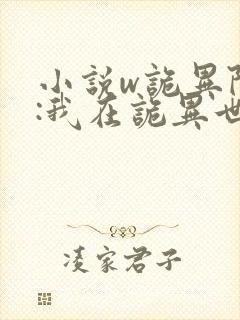 小說w詭異
:我在詭異世
凌家君子